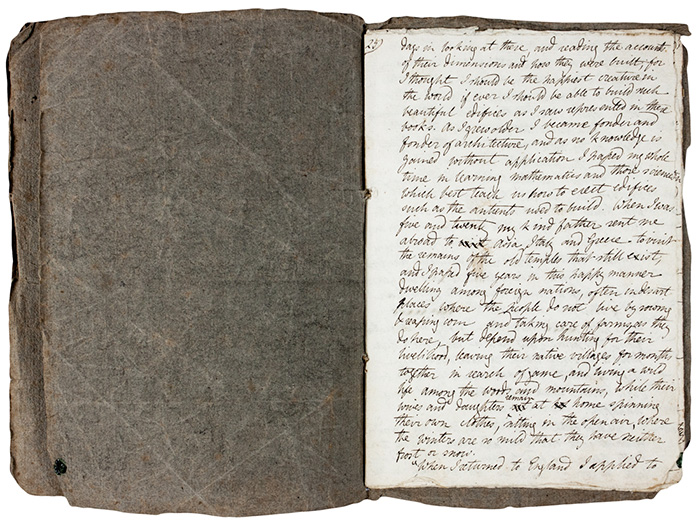 23)
days in looking at these, and reading the accounts
of their dimensions and how they were built, for
I thought I should be the happiest creature in
the world if ever I should be able to build such
beautiful edifices as I saw represented in these
books. As I grew older I became fonder and
fonder of architecture, and as no knowledge is
gained without application I passed my whole
time in learning mathematics and those sciences
which best teach us how to erect edifices
such as the antients used to build. When I was
five and twenty my kind father sent me
abroad to Asia Italy and Greece to visit
the remains of the old temples that still exist,
and I passed five years in this happy manner
dwelling among foreign nations, often in
places where the people do not live by sowing
& reaping corn and taking care of farms as they
do here, but depend upon hunting for their
livelihood, leaving their native villages for months
together in search of game, and living a wild
life among the woods and mountains, while their
wives and daughters remain at home spinning
their own clothes, sitting in the open air, where
the winters are so mild that they have neither
frost or snow.
"When I returned to England I applied to